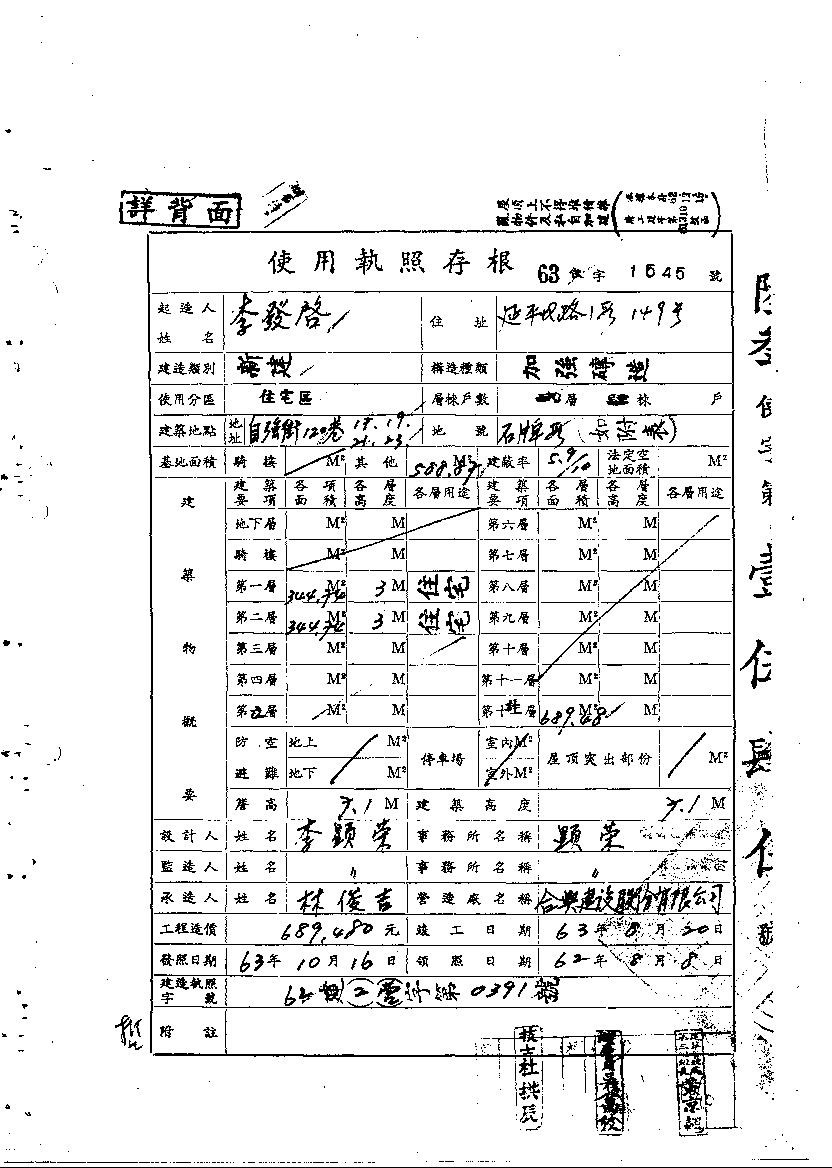 詳背面
使用執照存根 63 使字 1545 號
起造人姓名 李發啓 住址 延平北路1段149号
建造類別 新建 構造種類 加強磚造
使用分區 住宅區 層棟戶數 層 棟 戶
建築地點 地址 自強街120巷 17.19.21.23. 地號 石牌段(如附表)
基地面積 騎樓 M² 其他 588.87 M² 建蔽率 5.9/10 法定空地面積 M²
建築物概要
建築要項 各項面積 各層高度 各層用途 建築要項 各層面積 各層高度 各層用途
地下層 M² M 第六層 M² M
騎樓 M² M 第七層 M² M
第一層 344.74 M² 3 M 住宅 第八層 M² M
第二層 344.74 M² 3 M 住宅 第九層 M² M
第三層 M² M 第十層 M² M
第四層 M² M 第十一層 M² M
第五層 M² M 第十 層 689.48 M² M
防空避難 地上 M² 地下 M² 停車場 室內M² 室外M² 屋頂突出部份 M²
簷高 7.1 M 建築高度 7.1 M
設計人 姓名 李顯荣 事務所名稱 顯荣
監造人 姓名 〃 事務所名稱 〃
承造人 姓名 林俊吉 營造廠名稱 合興建設股份有限公司
工程造價 689,480 元 竣工日期 63年8月20日
發照日期 63年10月16日 領照日期 62年8月8日
建造執照字號 62 建(2)(營)字第0391號
附註